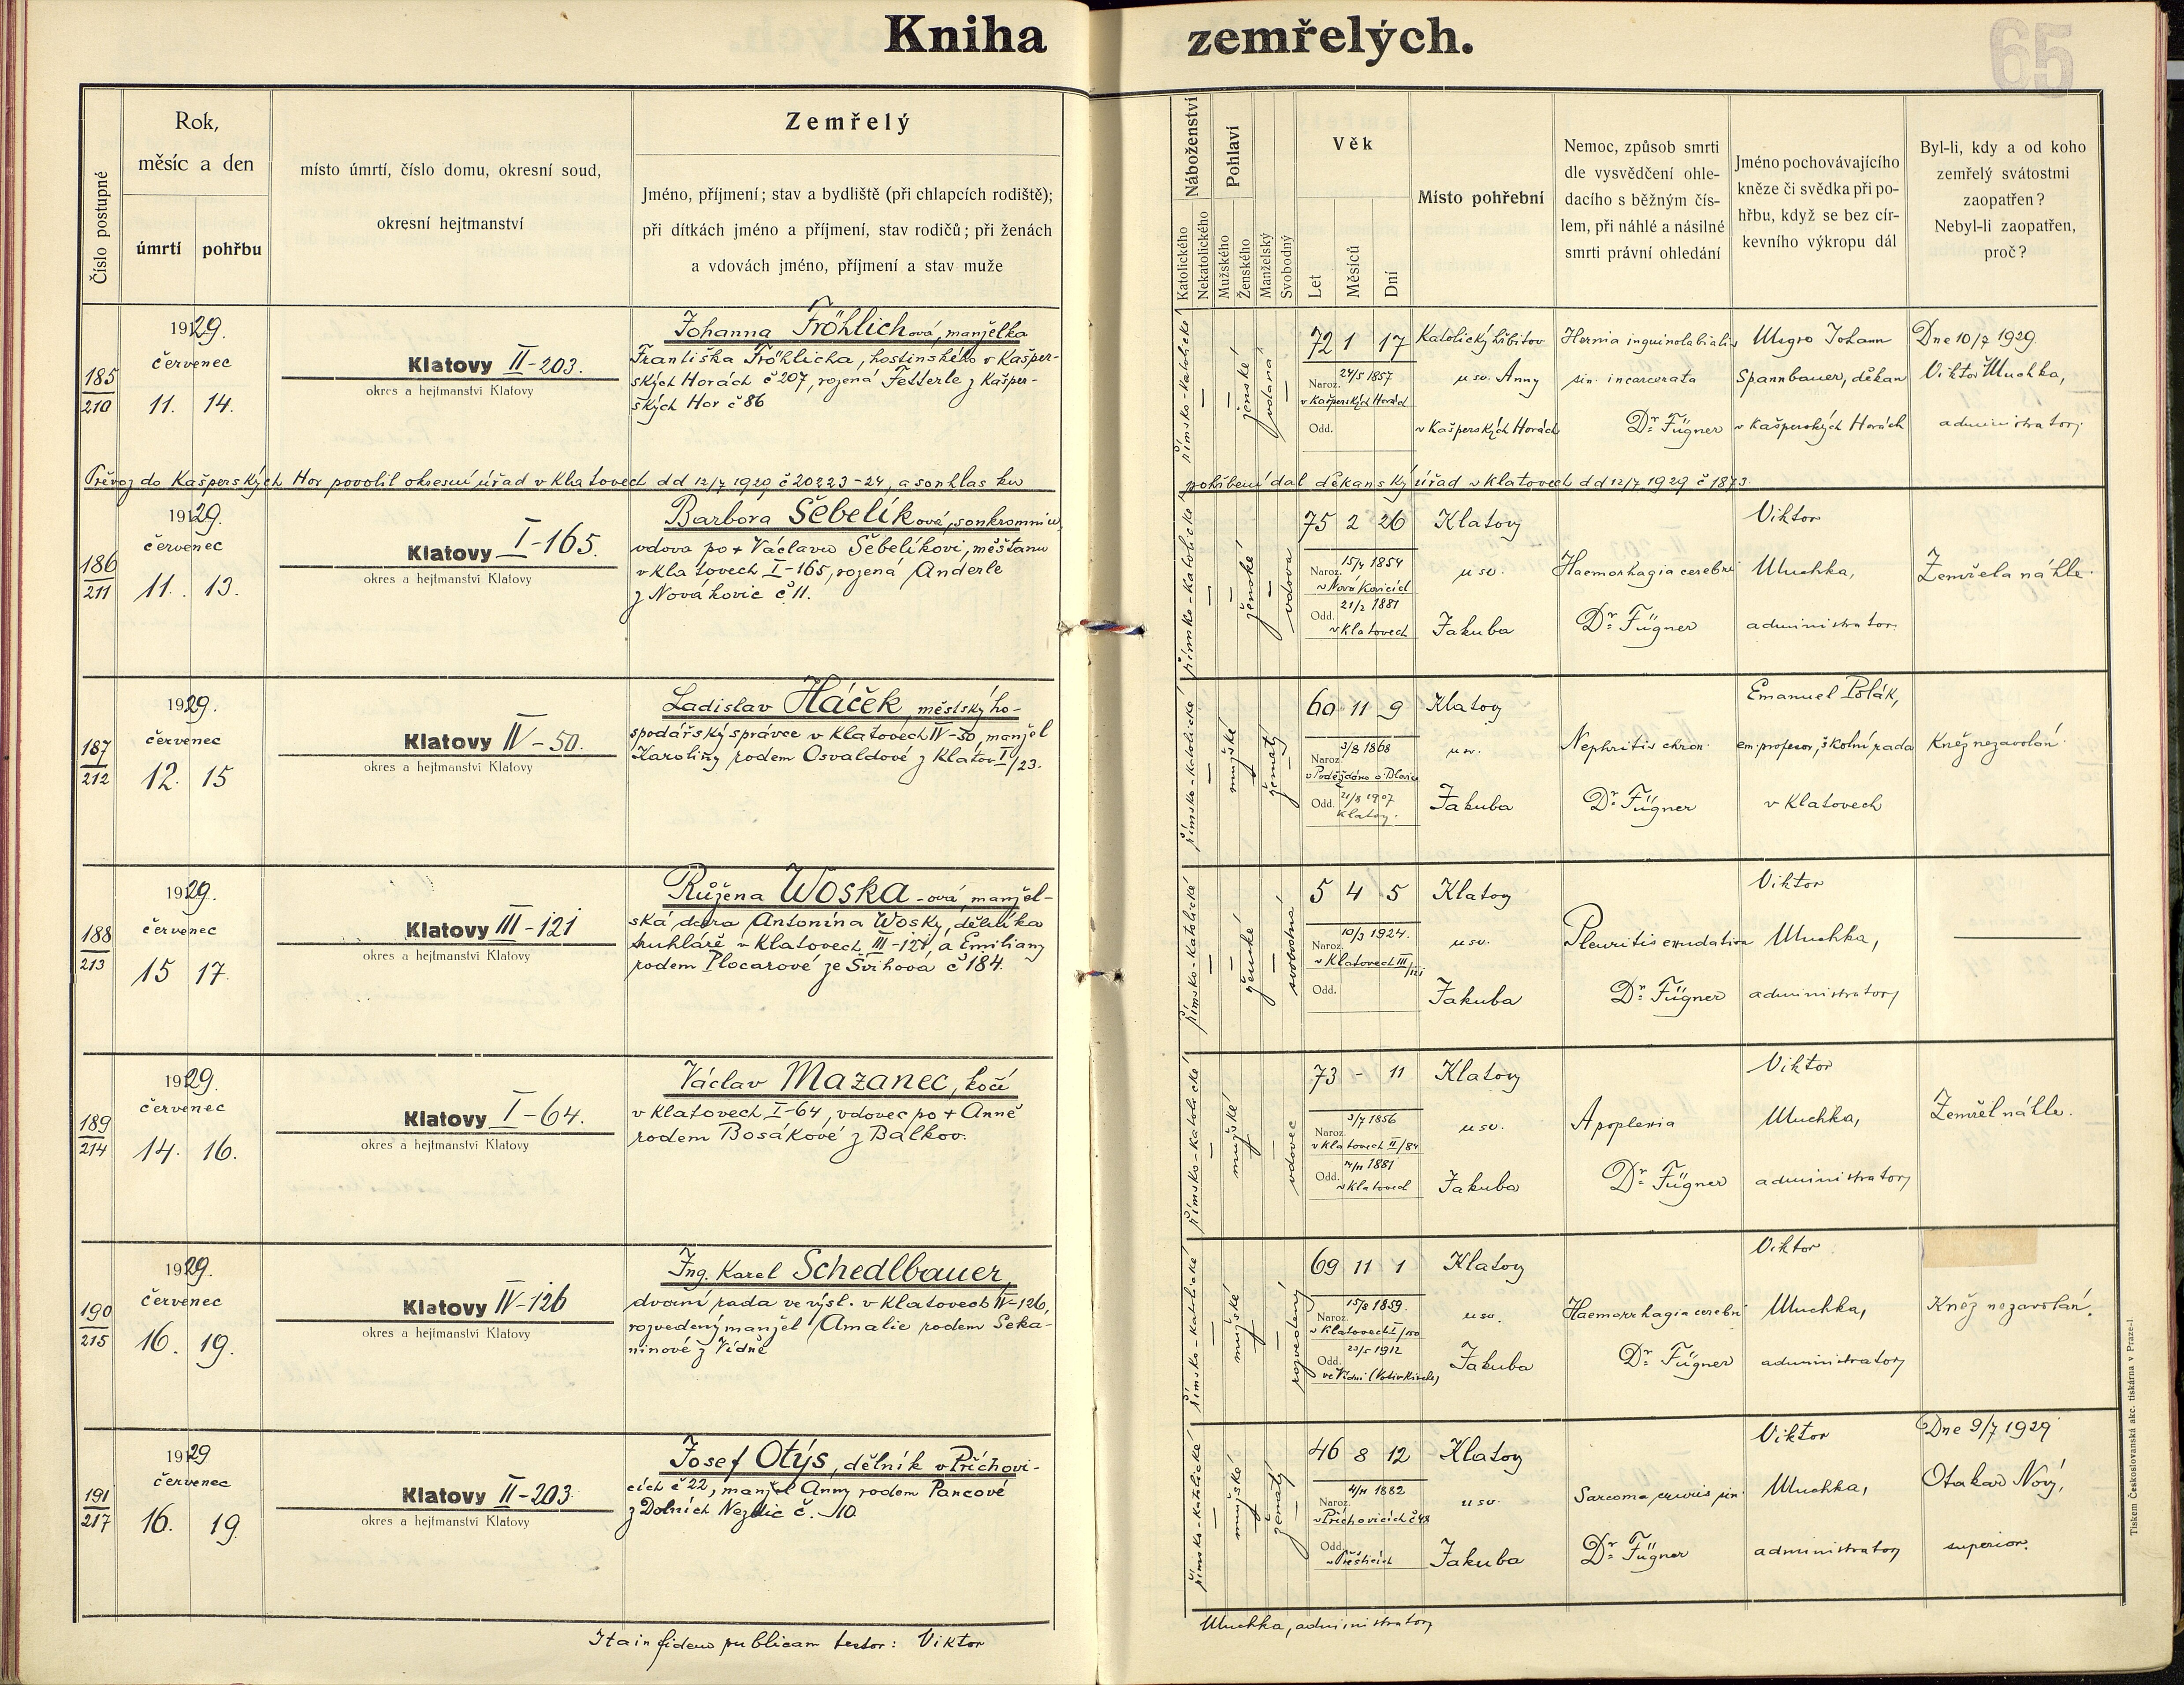 Kniha zemřelých.
65
Číslo postupné
Rok,
měsíc a den
úmrtí
pohřbu
místo úmrtí, číslo domu, okresní soud,
okresní hejtmanství
Zemřelý
Jméno, příjmení; stav a bydliště (při chlapcích rodiště);
při dítkách jméno a příjmení, stav rodičů; při ženách
a vdovách jméno, příjmení a stav muže
Náboženství
Katolického
Nekatolického
Pohlaví
Mužského
Ženského
Manželský
Svobodný
Věk
Let
Měsíců
Dní
Místo pohřební
Nemoc, způsob smrti
dle vysvědčení ohle-
dacího s běžným čís-
lem, při náhlé a násilné
smrti právní ohledání
Jméno pochovávajícího
kněze či svědka při po-
hřbu, když se bez cír-
kevního výkropu dál
Byl-li, kdy a od koho
zemřelý svátostmi
zaopatřen?
Nebyl-li zaopatřen,
proč?
185
210
1929.
červenec
11. 14.
Klatovy II-203.
okres a hejtmanství Klatovy
Johanna Fröhlichová, manželka
Františka Fröhlicha, hostinského v Kašper-
ských Horách č 207, rozená Fetterle z Kašper-
ských Hor č 86
římsko-katolické
ženské
vdaná
72 1 17
Naroz. 24/5 1857
v Kašperských Horách
Odd.
Katolický hřbitov
u sv. Anny
v Kašperských Horách
Hernia inguinolabialis
sin. incarcerata
Dr. Fügner
Msgre Johann
Spannbauer, děkan
v Kašperských Horách
Dne 10/7 1929
Viktor Muchka,
administrator
Převoz do Kašperských Hor povolil okresní úřad v Klatovech dd 12/7 1929 č 20223-24, a souhlas ku
pohřbení dal děkanský úřad v Klatovech dd 12/7 1929 č 1873.
186
211
1929.
červenec
11. 13.
Klatovy I-165.
okres a hejtmanství Klatovy
Barbora Šebelíková, soukromnice
vdova po + Václavu Šebelíkovi, měšťanu
v Klatovech I-165, rozená Anderle
z Novákovic č 11.
římsko-katolické
ženské
vdova
75 2 26
Naroz. 15/4 1854
v Novákovicích
Odd. 21/2 1881
v Klatovech
Klatovy
u sv.
Jakuba
Haemorhagia cerebri
Dr. Fügner
Viktor
Muchka,
administrator
Zemřela náhle
187
212
1929.
červenec
12. 15
Klatovy IV-50.
okres a hejtmanství Klatovy
Ladislav Háček, městský ho-
spodářský správce v Klatovech IV-50, manžel
Karoliny rodem Osvaldové z Klatov I/23.
římsko-katolické
mužské
ženatý
60 11 9
Naroz. 3/8 1868
Odd. 21/8 1907
Klatovy.
Klatovy
u sv.
Jakuba
Nephritis chron.
Dr. Fügner
Emanuel Polák,
em. profesor, školní rada
v Klatovech
Kněz nezavolán
188
213
1929.
červenec
15 17.
Klatovy III-121
okres a hejtmanství Klatovy
Růžena Woska-ová, manžel-
ská dcera Antonína Wosky, dělníka
truhláře v Klatovech III-121 a Emiliany
rodem Plocarové ze Švihova č 184.
římsko-katolické
ženské
svobodná
5 4 5
Naroz. 10/3 1924.
v Klatovech III/121
Odd.
Klatovy
u sv.
Jakuba
Pleuritis exudativa
Dr. Fügner
Viktor
Muchka,
administrator
189
214
1929.
červenec
14. 16.
Klatovy I-64.
okres a hejtmanství Klatovy
Václav Mazanec, kočí
v Klatovech I-64, vdovec po + Anně
rodem Bosákové z Balkov.
římsko-katolické
mužské
vdovec
73 - 11
Naroz. 3/7 1856
v Klatovech II/84
Odd. 7/11 1881
v Klatovech
Klatovy
u sv.
Jakuba
Apoplexia
Dr. Fügner
Viktor
Muchka,
administrator
Zemřel náhle.
190
215
1929.
červenec
16. 19.
Klatovy IV-126
okres a hejtmanství Klatovy
Ing. Karel Schedlbauer,
dvorní rada ve výsl. v Klatovech IV-126,
rozvedený manžel Amalie rodem Seka-
ninové z Vídně
římsko-katolické
mužské
rozvedený
69 11 1
Naroz. 15/8 1859.
v Klatovech I/150
Odd. 23/5 1912
ve Vídni (Votivkirche)
Klatovy
u sv.
Jakuba
Haemorrhagia cerebri
Dr. Fügner
Viktor
Muchka,
administrator
Kněz nezavolán.
191
217
1929
červenec
16. 19.
Klatovy II-203.
okres a hejtmanství Klatovy
Josef Otýs, dělník v Příchovi-
cích č 22, manžel Anny rodem Pancové
z Dolních Nezdic č. 10.
římsko-katolické
mužské
ženatý
46 8 12
Naroz. 4/11 1882
v Příchovicích č 48
Odd.
v Přešticích
Klatovy
u sv.
Jakuba
Sarcoma cruris sin.
Dr. Fügner
Viktor
Muchka,
administrator
Dne 9/7 1929
Otakar Nový,
superior.
Ita in fidem publicam testor: Viktor
Muchka, administrator
Tiskem Československá akc. tiskárna v Praze-I.